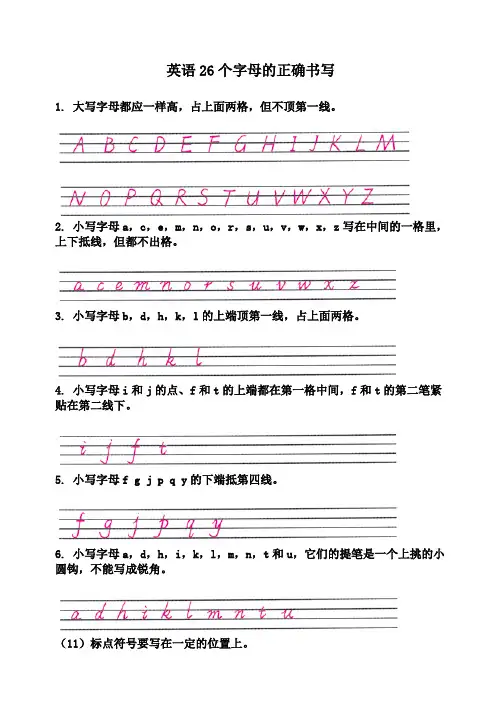 英语26个字母的正确书写
1. 大写字母都应一样高,占上面两格,但不顶第一线。
A B C D E F G H I J K L M
N O P Q R S T U V W X Y Z
2. 小写字母a,c,e,m,n,o,r,s,u,v,w,x,z写在中间的一格里,
上下抵线,但都不出格。
a c e m n o r s u v w x z
3. 小写字母b,d,h,k,l的上端顶第一线,占上面两格。
b d h k l
4. 小写字母i和j的点、f和t的上端都在第一格中间,f和t的第二笔紧
贴在第二线下。
i j f t
5. 小写字母f g j p q y的下端抵第四线。
f g j p q y
6. 小写字母a,d,h,i,k,l,m,n,t和u,它们的提笔是一个上挑的小
圆钩,不能写成锐角。
a d h i k l m n t u
(11)标点符号要写在一定的位置上。